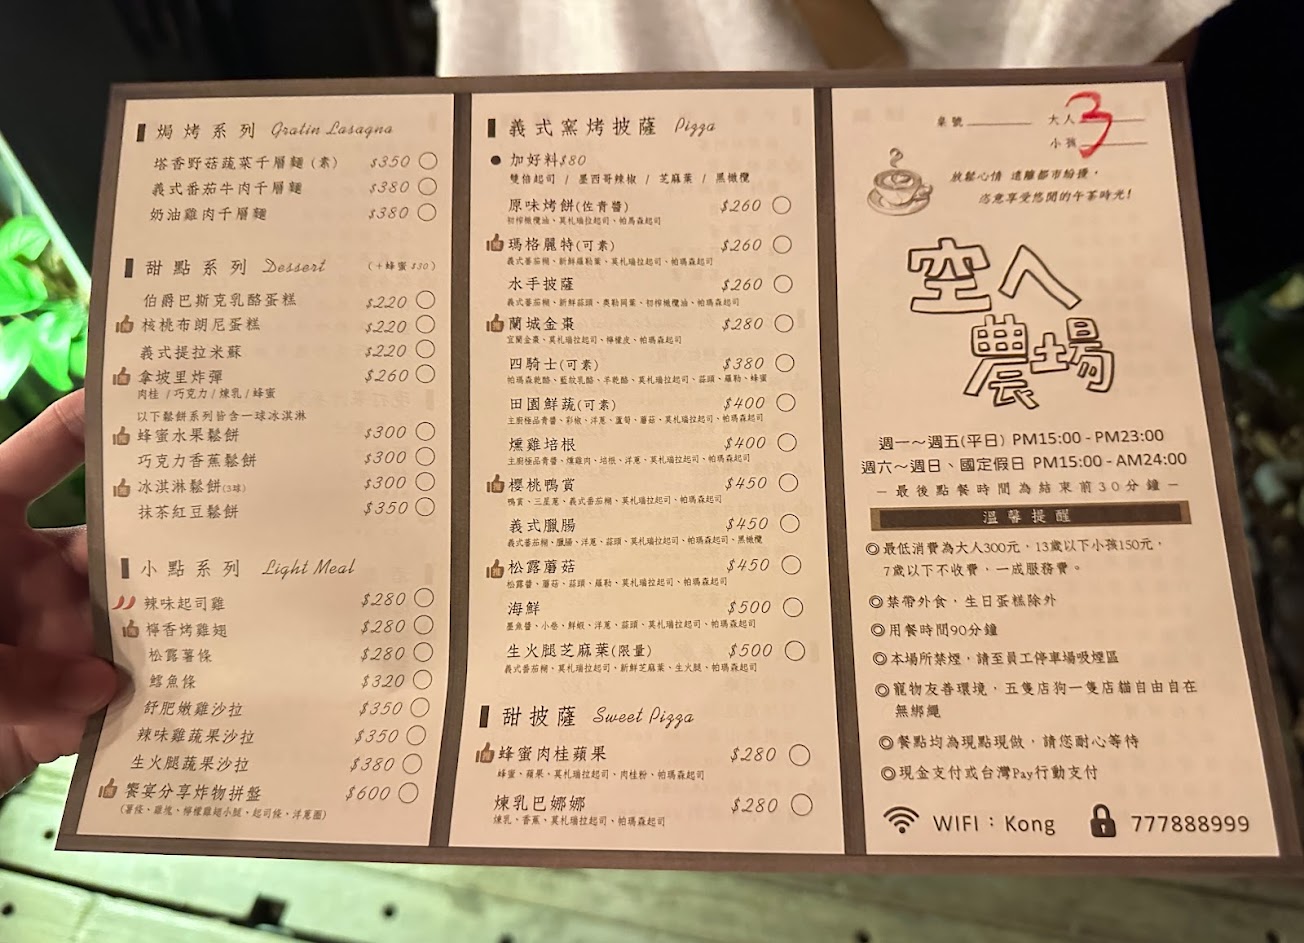 焗烤系列 Gratin Lasagna
塔香野菇蔬菜千層麵(素) $350
義式番茄牛肉千層麵 $380
奶油雞肉千層麵 $380
甜點系列 Dessert (+蜂蜜$30)
伯爵巴斯克乳酪蛋糕 $220
核桃布朗尼蛋糕 $220
義式提拉米蘇 $220
拿坡里炸彈 $260
肉桂/巧克力/煉乳/蜂蜜
以下鬆餅系列皆含一球冰淇淋
蜂蜜水果鬆餅 $300
巧克力香蕉鬆餅 $300
冰淇淋鬆餅(3球) $300
抹茶紅豆鬆餅 $350
小點系列 Light Meal
辣味起司雞 $280
檸香烤雞翅 $280
松露薯條 $280
鱈魚條 $320
舒肥嫩雞沙拉 $350
辣味雞蔬果沙拉 $350
生火腿蔬果沙拉 $380
饗宴分享炸物拼盤 $600
(薯條、雞塊、檸檬雞翅小腿、起司條、洋蔥圈)
義式窯烤披薩 Pizza
加好料$80
雙倍起司 / 墨西哥辣椒 / 芝麻葉 / 黑橄欖
原味烤餅(佐青醬) $260
初榨橄欖油、莫札瑞拉起司、帕馬森起司
瑪格麗特(可素) $260
義式番茄糊、新鮮羅勒葉、莫札瑞拉起司、帕瑪森起司
水手披薩 $260
義式番茄糊、新鮮蒜頭、奧勒岡葉、初榨橄欖油、帕瑪森起司
蘭城金棗 $280
宜蘭金棗、莫札瑞拉起司、檸檬皮、帕瑪森起司
四騎士(可素) $380
帕瑪森乾酪、藍紋乳酪、羊乾酪、莫札瑞拉起司、蒜頭、羅勒、蜂蜜
田園鮮蔬(可素) $400
主廚極品青醬、彩椒、洋蔥、蘆筍、蘑菇、莫札瑞拉起司、帕瑪森起司
燻雞培根 $400
主廚極品青醬、燻雞肉、培根、洋蔥、莫札瑞拉起司、帕瑪森起司
櫻桃鴨賞 $450
鴨賞、三星蔥、義式番茄糊、莫札瑞拉起司、帕瑪森起司
義式臘腸 $450
義式番茄糊、臘腸、洋蔥、蒜頭、莫札瑞拉起司、帕瑪森起司、黑橄欖
松露蘑菇 $450
松露醬、蘑菇、蒜頭、羅勒、莫札瑞拉起司、帕瑪森起司
海鮮 $500
墨魚醬、小卷、鮮蝦、洋蔥、蒜頭、莫札瑞拉起司、帕瑪森起司
生火腿芝麻葉(限量) $500
義式番茄糊、莫札瑞拉起司、新鮮芝麻葉、生火腿、帕瑪森起司
甜披薩 Sweet Pizza
蜂蜜肉桂蘋果 $280
蜂蜜、蘋果、莫札瑞拉起司、肉桂粉、帕瑪森起司
煉乳巴娜娜 $280
煉乳、香蕉、莫札瑞拉起司、帕瑪森起司
桌號 大人 3
小孩
放鬆心情 遠離都市紛擾，
恣意享受悠閒的午茶時光！
空ㄟ
農場
週一～週五(平日) PM15:00 - PM23:00
週六～週日、國定假日 PM15:00 - AM24:00
－最後點餐時間為結束前30分鐘－
溫馨提醒
◎最低消費為大人300元，13歲以下小孩150元，
7歲以下不收費，一成服務費。
◎禁帶外食，生日蛋糕除外
◎用餐時間90分鐘
◎本場所禁煙，請至員工停車場吸煙區
◎寵物友善環境，五隻店狗一隻店貓自由自在
無綁繩
◎餐點均為現點現做，請您耐心等待
◎現金支付或台灣Pay行動支付
WIFI：Kong 777888999